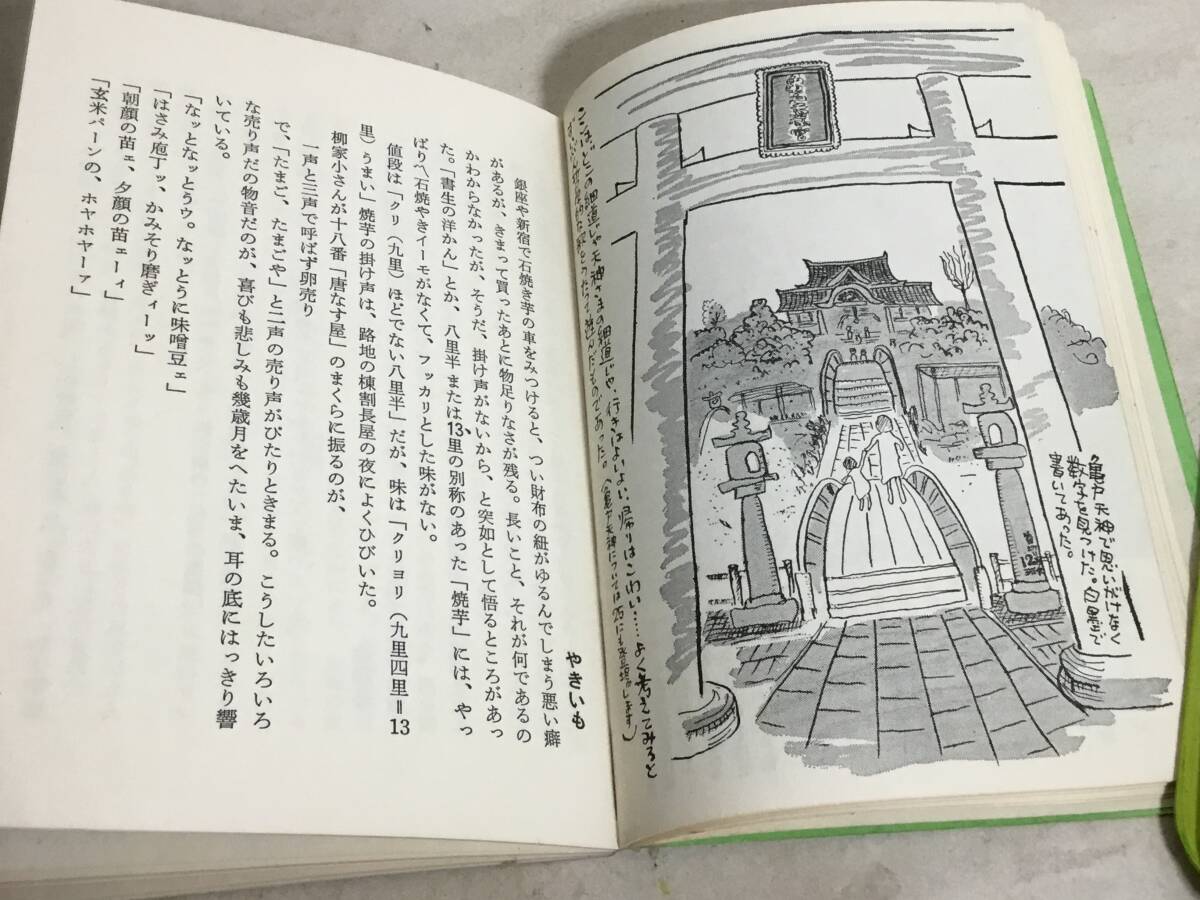 亀戸天神で思いがけなく
数字を見つけた。白墨で
書いてあった。
12
ここはどこの細道じゃ天神さまの細道じゃ、行きはよいよい、帰りはこわい……よく考えてみると
ずいぶん哲学的な歌をうたって遊んだものであった。(亀戸天神については25にも登場します)
やきいも
銀座や新宿で石焼き芋の車をみつけると、つい財布の紐がゆるんでしまう悪い癖
があるが、きまって買ったあとに物足りなさが残る。長いこと、それが何であるの
かわからなかったが、そうだ、掛け声がないから、と突如として悟るところがあっ
た。「書生の洋かん」とか、八里半 または13里の別称のあった「焼芋」には、やっ
ぱり〽石焼やきイーモがなくて、フッカリとした味がない。
値段は「クリ(九里)ほどでない八里半」だが、味は「クリヨリ(九里四里=13
里)うまい」焼芋の掛け声は、路地の棟割長屋の夜によくひびいた。
柳家小さんが十八番「唐なす屋」のまくらに振るのが、
一声と三声で呼ばず卵売り
で、「たまご、たまごや」と二声の売り声がぴたりときまる。こうしたいろいろ
な売り声だの物音だのが、喜びも悲しみも幾歳月をへたいま、耳の底にはっきり響
いている。
「なッとなッとうゥ。なッとうに味噌豆ェ」
「はさみ庖丁ッ、かみそり磨ぎィーッ」
「朝顔の苗ェ、夕顔の苗ェーィ」
「玄米パーンの、ホヤホヤーァ」